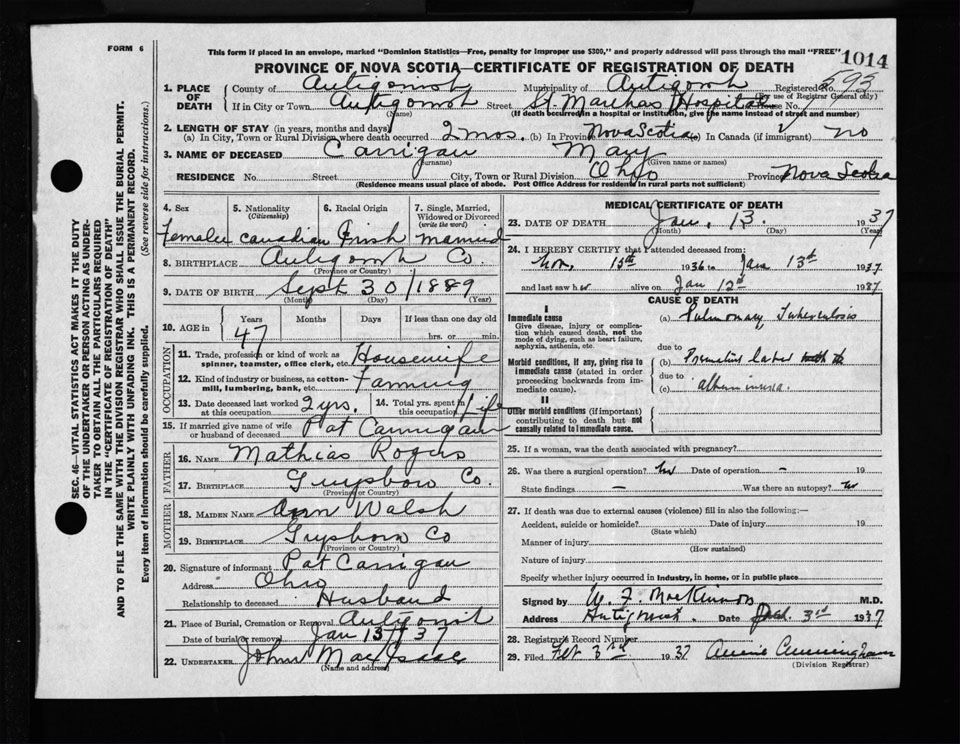 FORM 6
This form if placed in an envelope, marked "Dominion Statistics—Free, penalty for improper use $300," and properly addressed will pass through the mail "FREE"
1014
PROVINCE OF NOVA SCOTIA—CERTIFICATE OF REGISTRATION OF DEATH
595
1. PLACE OF DEATH
County of Antigonish Municipality of Antigonish Registered No.
(For use of Registrar General only)
If in City or Town Antigonish Street St. Marthas Hospital House No.
(Name) (If death occurred in a hospital or institution, give the name instead of street and number)
2. LENGTH OF STAY (in years, months and days)
(a) In City, Town or Rural Division where death occurred 2 mos. (b) In Province Nova Scotia (c) In Canada (if immigrant) no
3. NAME OF DECEASED Carrigan Mary
(Surname) (Given name or names)
RESIDENCE No. Street City, Town or Rural Division Ohio Province Nova Scotia
(Residence means usual place of abode. Post Office Address for residents in rural parts not sufficient)
4. Sex 5. Nationality (Citizenship) 6. Racial Origin 7. Single, Married, Widowed or Divorced (write the word)
Female Canadian Irish Married
8. BIRTHPLACE Antigonish Co.
(Province or Country)
9. DATE OF BIRTH Sept 30/1889
(Month) (Day) (Year)
10. AGE in Years Months Days If less than one day old
47 hrs. or min.
OCCUPATION
11. Trade, profession or kind of work as spinner, teamster, office clerk, etc. Housewife
12. Kind of industry or business, as cotton-mill, lumbering, bank, etc. Farming
13. Date deceased last worked at this occupation 2 yrs. 14. Total yrs. spent in this occupation Life
15. If married give name of wife or husband of deceased Pat Carrigan
FATHER
16. NAME Mathias Rogers
17. BIRTHPLACE Guysboro Co.
(Province or Country)
MOTHER
18. MAIDEN NAME Ann Walsh
19. BIRTHPLACE Guysboro Co
(Province or Country)
20. Signature of informant Pat Carrigan
Address Ohio
Relationship to deceased Husband
21. Place of Burial, Cremation or Removal Antigonish
Date of burial or removal Jan 15/37
22. UNDERTAKER John MacIsaac
(Name and address)
MEDICAL CERTIFICATE OF DEATH
23. DATE OF DEATH Jan. 13. 1937
(Month) (Day) (Year)
24. I HEREBY CERTIFY that I attended deceased from:
Nov. 13th 1936 to Jan 13th 1937
and last saw her alive on Jan 12th 1937
CAUSE OF DEATH
Immediate cause
Give disease, injury or complication which caused death, not the mode of dying, such as heart failure, asphyxia, asthenia, etc.
(a) Pulmonary Tuberculosis
due to
Morbid conditions, if any, giving rise to immediate cause (stated in order proceeding backwards from immediate cause).
(b) Premature labor
due to
(c) albuminuria.
II
Other morbid conditions (if important) contributing to death but not causally related to immediate cause.
25. If a woman, was the death associated with pregnancy?
26. Was there a surgical operation? no Date of operation –
State findings – Was there an autopsy? no
27. If death was due to external causes (violence) fill in also the following:—
Accident, suicide or homicide? Date of injury 19
(State which)
Manner of injury
(How sustained)
Nature of injury
Specify whether injury occurred in industry, in home, or in public place
Signed by W. F. MacKinnon M.D.
Address Antigonish. Date Feb. 3rd 1937
28. Registrar's Record Number
29. Filed Feb 3rd 1937 Annie Cunningham
(Division Registrar)
SEC. 46—VITAL STATISTICS ACT MAKES IT THE DUTY
OF THE UNDERTAKER OR PERSON ACTING AS UNDER-
TAKER TO OBTAIN ALL THE PARTICULARS REQUIRED
IN THE "CERTIFICATE OF REGISTRATION OF DEATH"
AND TO FILE THE SAME WITH THE DIVISION REGISTRAR WHO SHALL ISSUE THE BURIAL PERMIT.
WRITE PLAINLY WITH UNFADING INK. THIS IS A PERMANENT RECORD.
Every item of information should be carefully supplied. (See reverse side for instructions.)